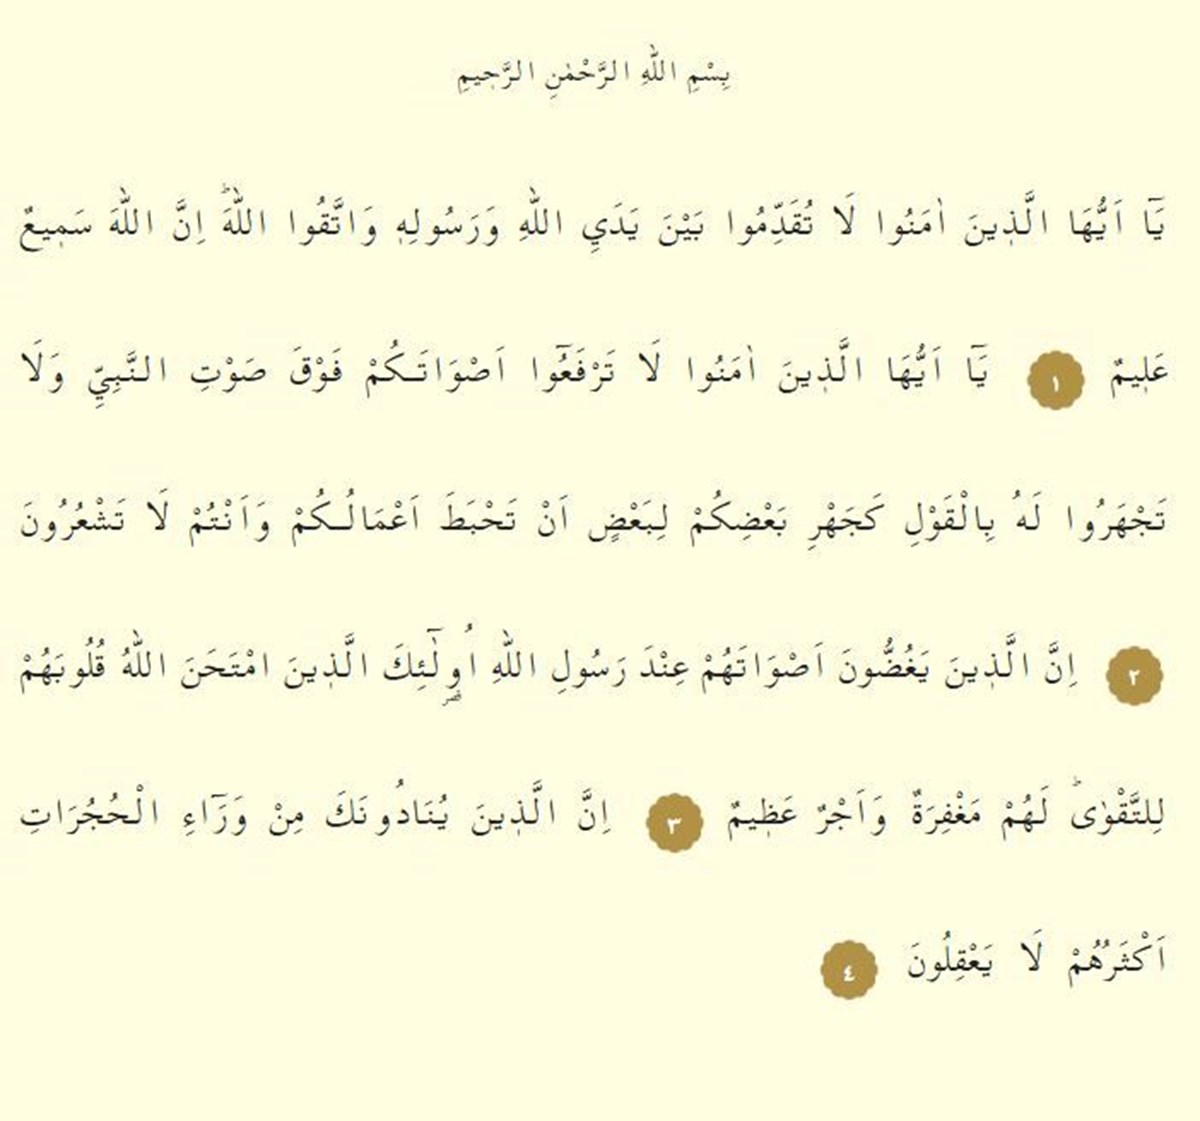 بِسْمِ اللّٰهِ الرَّحْمٰنِ الرَّح۪يمِ
يَٓا اَيُّهَا الَّذ۪ينَ اٰمَنُوا لَا تُقَدِّمُوا بَيْنَ يَدَيِ اللّٰهِ وَرَسُولِه۪ وَاتَّقُوا اللّٰهَۜ اِنَّ اللّٰهَ سَم۪يعٌ
عَل۪يمٌ ١ يَٓا اَيُّهَا الَّذ۪ينَ اٰمَنُوا لَا تَرْفَعُٓوا اَصْوَاتَكُمْ فَوْقَ صَوْتِ النَّبِيِّ وَلَا
تَجْهَرُوا لَهُ بِالْقَوْلِ كَجَهْرِ بَعْضِكُمْ لِبَعْضٍ اَنْ تَحْبَطَ اَعْمَالُكُمْ وَاَنْتُمْ لَا تَشْعُرُونَ
٢ اِنَّ الَّذ۪ينَ يَغُضُّونَ اَصْوَاتَهُمْ عِنْدَ رَسُولِ اللّٰهِ اُو۬لٰٓئِكَ الَّذ۪ينَ امْتَحَنَ اللّٰهُ قُلُوبَهُمْ
لِلتَّقْوٰىۜ لَهُمْ مَغْفِرَةٌ وَاَجْرٌ عَظ۪يمٌ ٣ اِنَّ الَّذ۪ينَ يُنَادُونَكَ مِنْ وَرَٓاءِ الْحُجُرَاتِ
اَكْثَرُهُمْ لَا يَعْقِلُونَ ٤